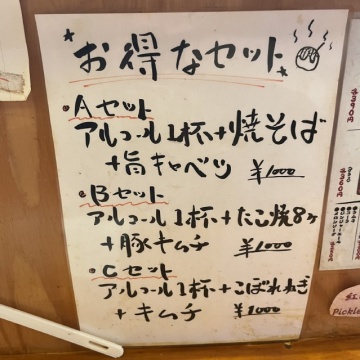 お得なセット
Aセット
アルコール1杯+焼そば
+旨キャベツ ¥1000
Bセット
アルコール1杯+たこ焼8ヶ
+豚キムチ ¥1000
Cセット
アルコール1杯+こぼれねぎ
+キムチ ¥1000
各390円
各360円
紅
Pickle